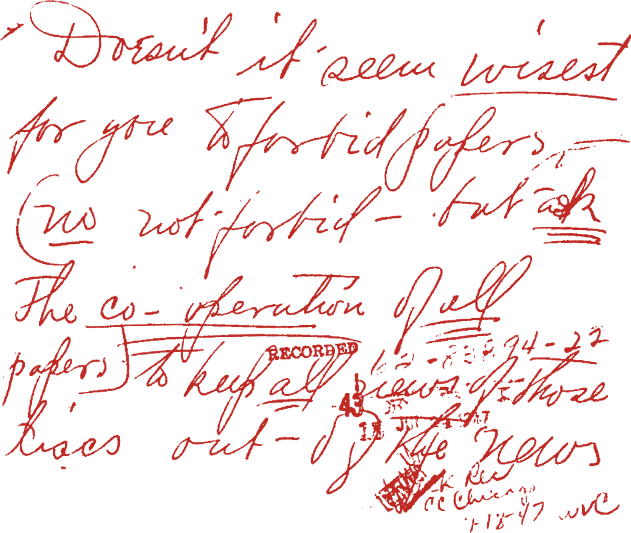 Doesn't it seem wisest
for you to forbid papers,—
(no not forbid – but ask
The co-operation of all
papers) to keep all news of those
discs out – of the news
RECORDED
62-83894-22
43
cc Chicago
7-18-47 WVC